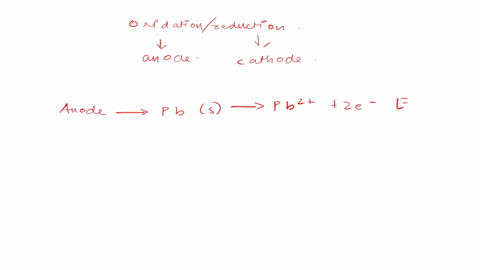 Oxidation/reduction.
anode. cathode.
Anode ⟶ Pb (s) ⟶ Pb²⁺ + 2e⁻ E